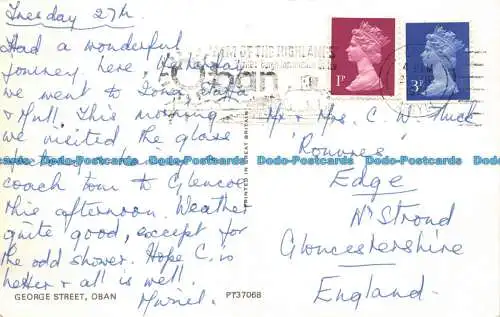 Tuesday 27th
Had a wonderful
journey here. Yesterday
we went to Iona, Staffa
& Mull. This morning
we visited the glass
coach tour to Glencoe
this afternoon. Weather
quite good, except for
the odd shower. Hope C. is
better & all is well.
Muriel.
GEORGE STREET, OBAN
PT37068
PRINTED IN GREAT BRITAIN
OF THE HIGHLANDS
Oban
1P
3P
Mr & Mrs. C. W.
Edge
Nr Stroud
Gloucestershire
England.
Dodo-Postcards Dodo-Postcards Dodo-Postcards Dodo-Postcards Dodo-Postcards